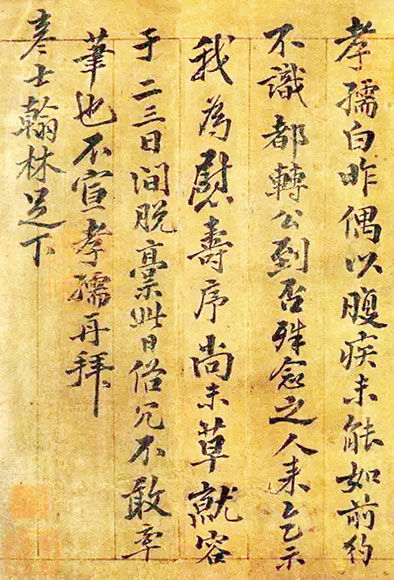 孝孺白昨偶以腹疾未能如前約
不識都轉公到否殊念之人来乞示
我為慰壽序尚未草就容
于二三日间脱稾此日俗冗不敢率
筆也不宣孝孺再拜
彦士翰林足下